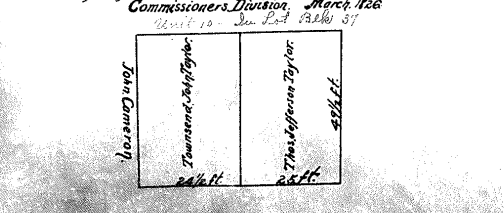 Commissioners Division. March, 1826
Unit 10 - In Lot Blk 37
John Cameron.
Townsend, John Taylor.
Thos. Jefferson Taylor.
49½ ft.
24½ ft.
25 ft.